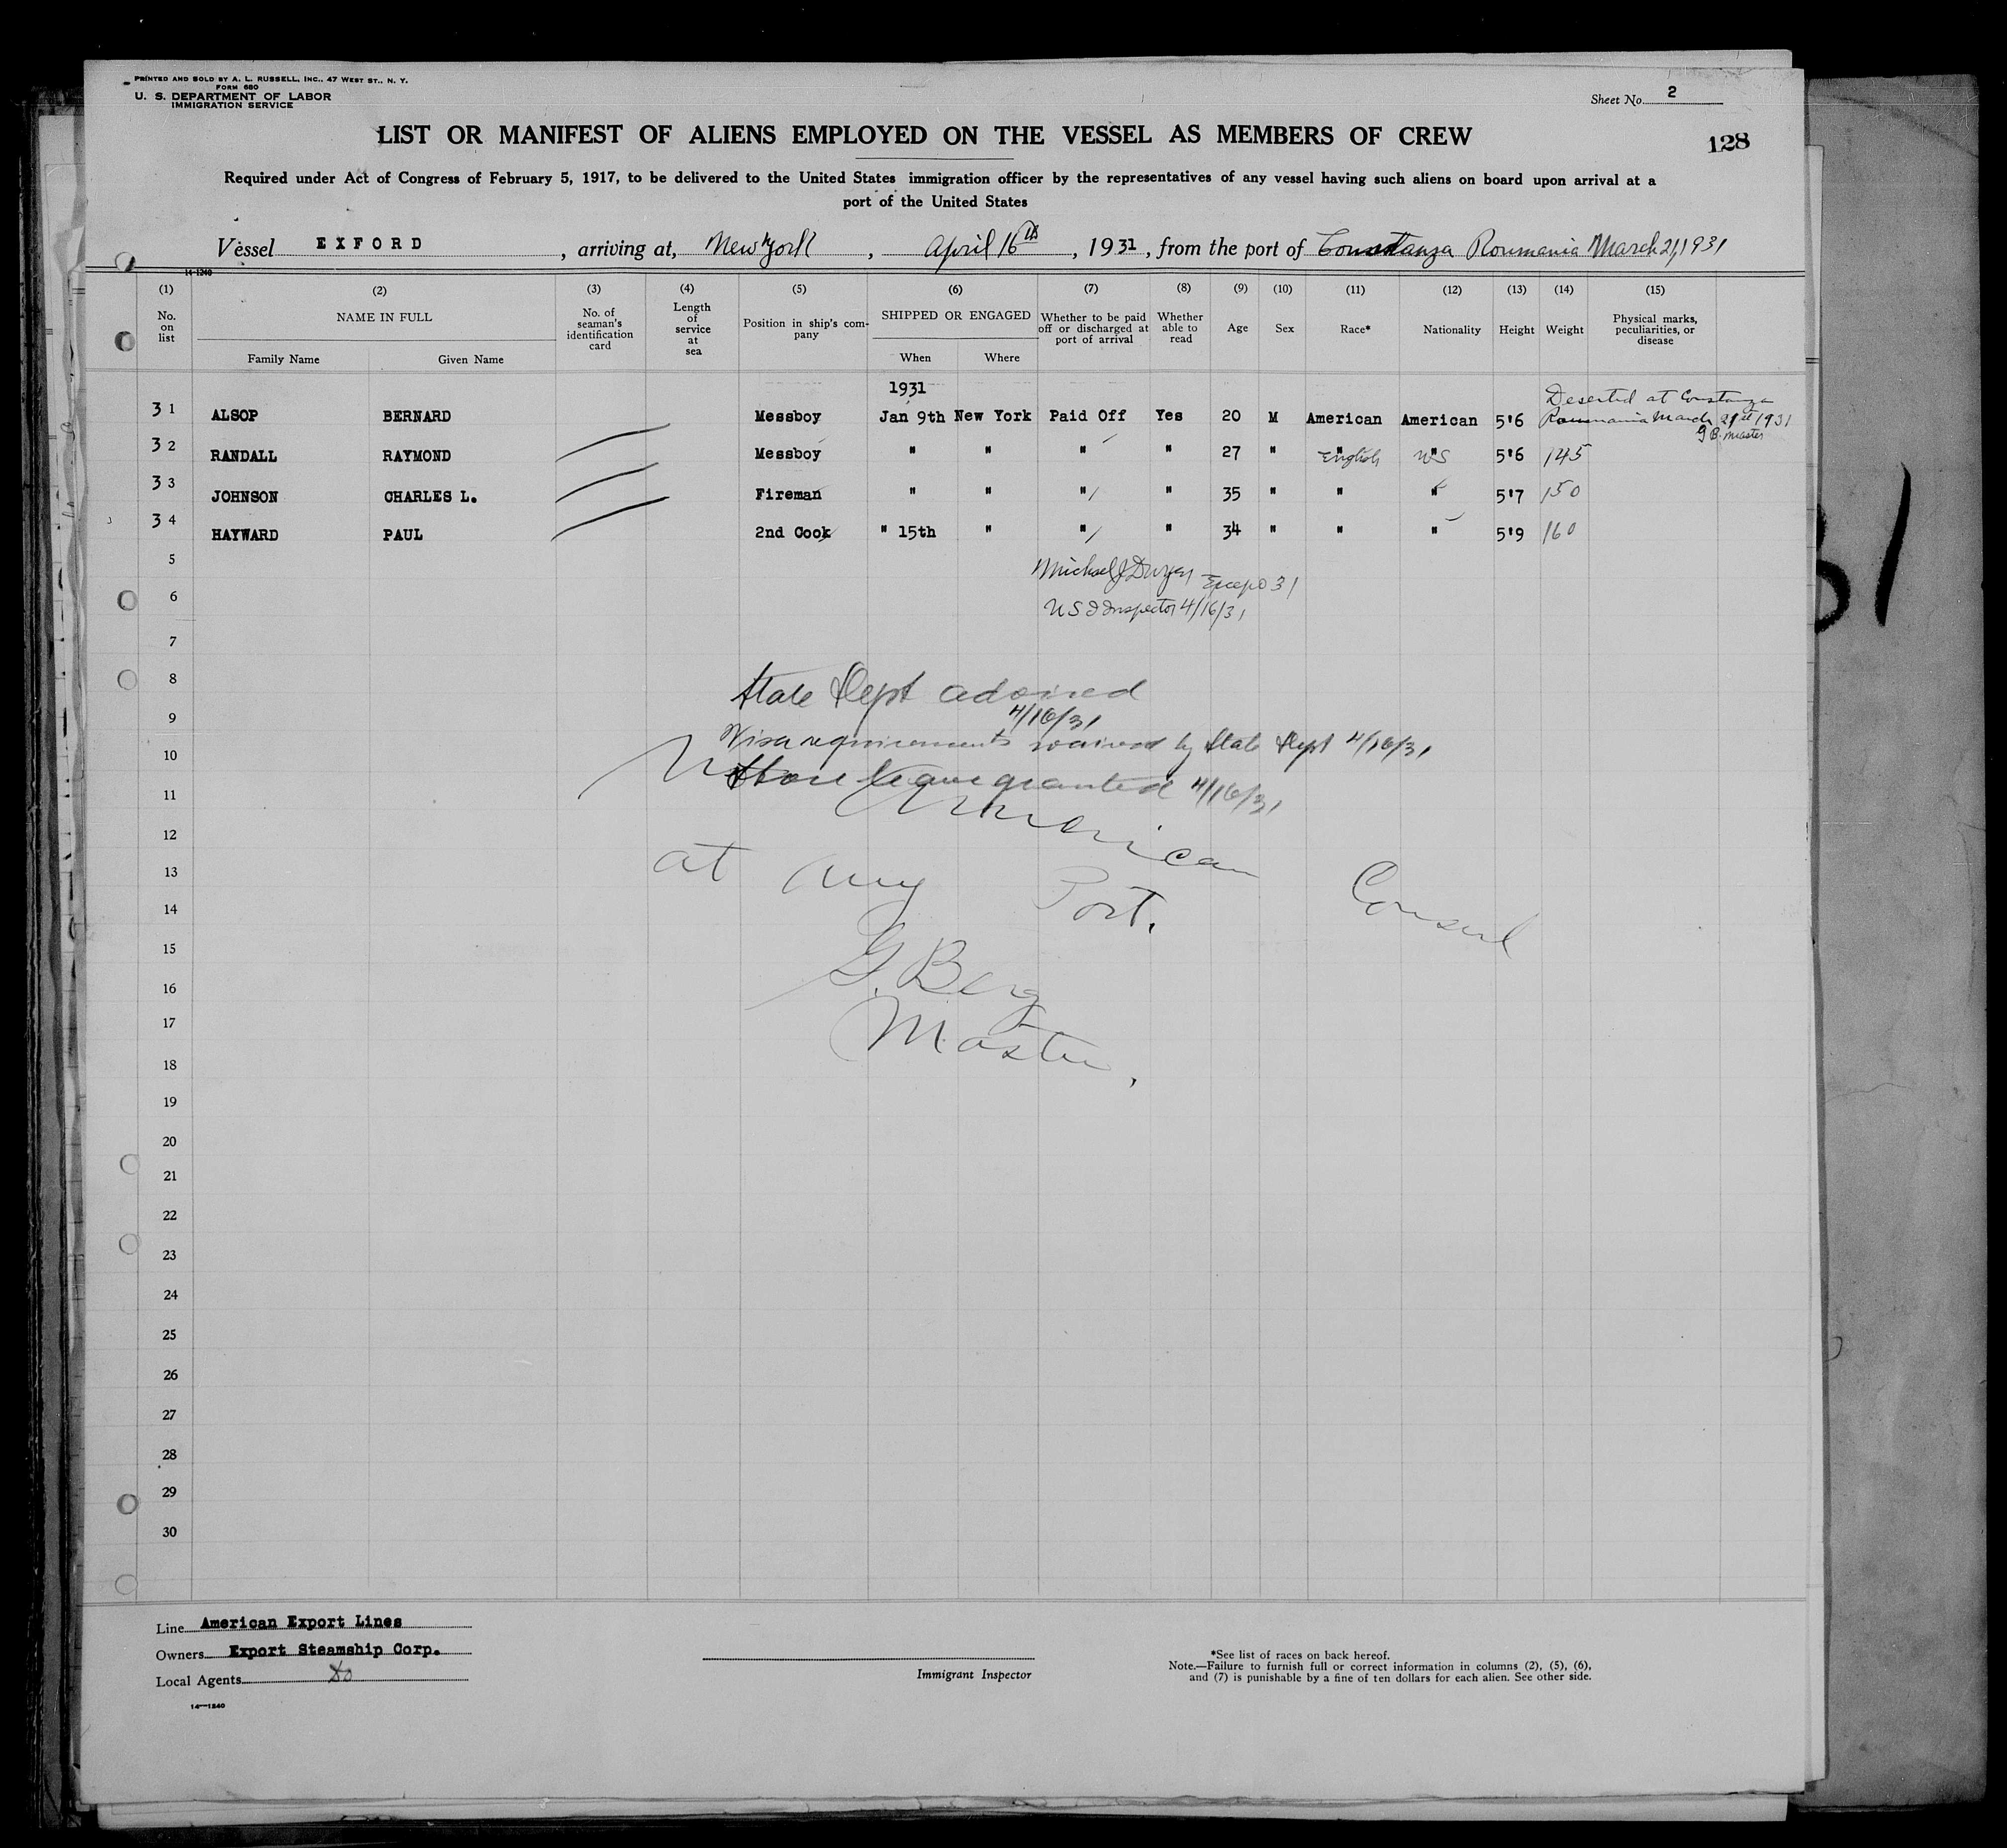 PRINTED AND SOLD BY A. L. RUSSELL, INC., 47 WEST ST., N. Y.
FORM 680
U. S. DEPARTMENT OF LABOR
IMMIGRATION SERVICE
Sheet No. 2
LIST OR MANIFEST OF ALIENS EMPLOYED ON THE VESSEL AS MEMBERS OF CREW
128
Required under Act of Congress of February 5, 1917, to be delivered to the United States immigration officer by the representatives of any vessel having such aliens on board upon arrival at a
port of the United States
Vessel EXFORD, arriving at, New York, April 16th, 1931, from the port of Constanza Roumania March 21, 1931
14-1240
(1) (2) (3) (4) (5) (6) (7) (8) (9) (10) (11) (12) (13) (14) (15)
No. on list
NAME IN FULL
Family Name Given Name
No. of seaman's identification card
Length of service at sea
Position in ship's company
SHIPPED OR ENGAGED
When Where
Whether to be paid off or discharged at port of arrival
Whether able to read
Age Sex Race* Nationality Height Weight
Physical marks, peculiarities, or disease
1931
31 ALSOP BERNARD Messboy Jan 9th New York Paid Off Yes 20 M American American 5'6 Deserted at Constanza
Roumania March 21st 1931
G B. Master
32 RANDALL RAYMOND Messboy " " " " 27 " English US 5'6 145
33 JOHNSON CHARLES L. Fireman " " " " 35 " " " 5'7 150
34 HAYWARD PAUL 2nd Cook " 15th " " " 34 " " " 5'9 160
5
Michael J Dwyer Except 31
6
U S I Inspector 4/16/31
7
8
State Dept advised
9
4/16/31
Visa requirements waived by State Dept 4/16/31
10
Shore leave granted 4/16/31
11
American
12
13
at any Port. Consul
14
15
G. Berg
16
17
Master.
18
19
20
21
22
23
24
25
26
27
28
29
30
Line American Export Lines
Owners Export Steamship Corp.
Local Agents do
14—1240
Immigrant Inspector
*See list of races on back hereof.
Note.—Failure to furnish full or correct information in columns (2), (5), (6),
and (7) is punishable by a fine of ten dollars for each alien. See other side.